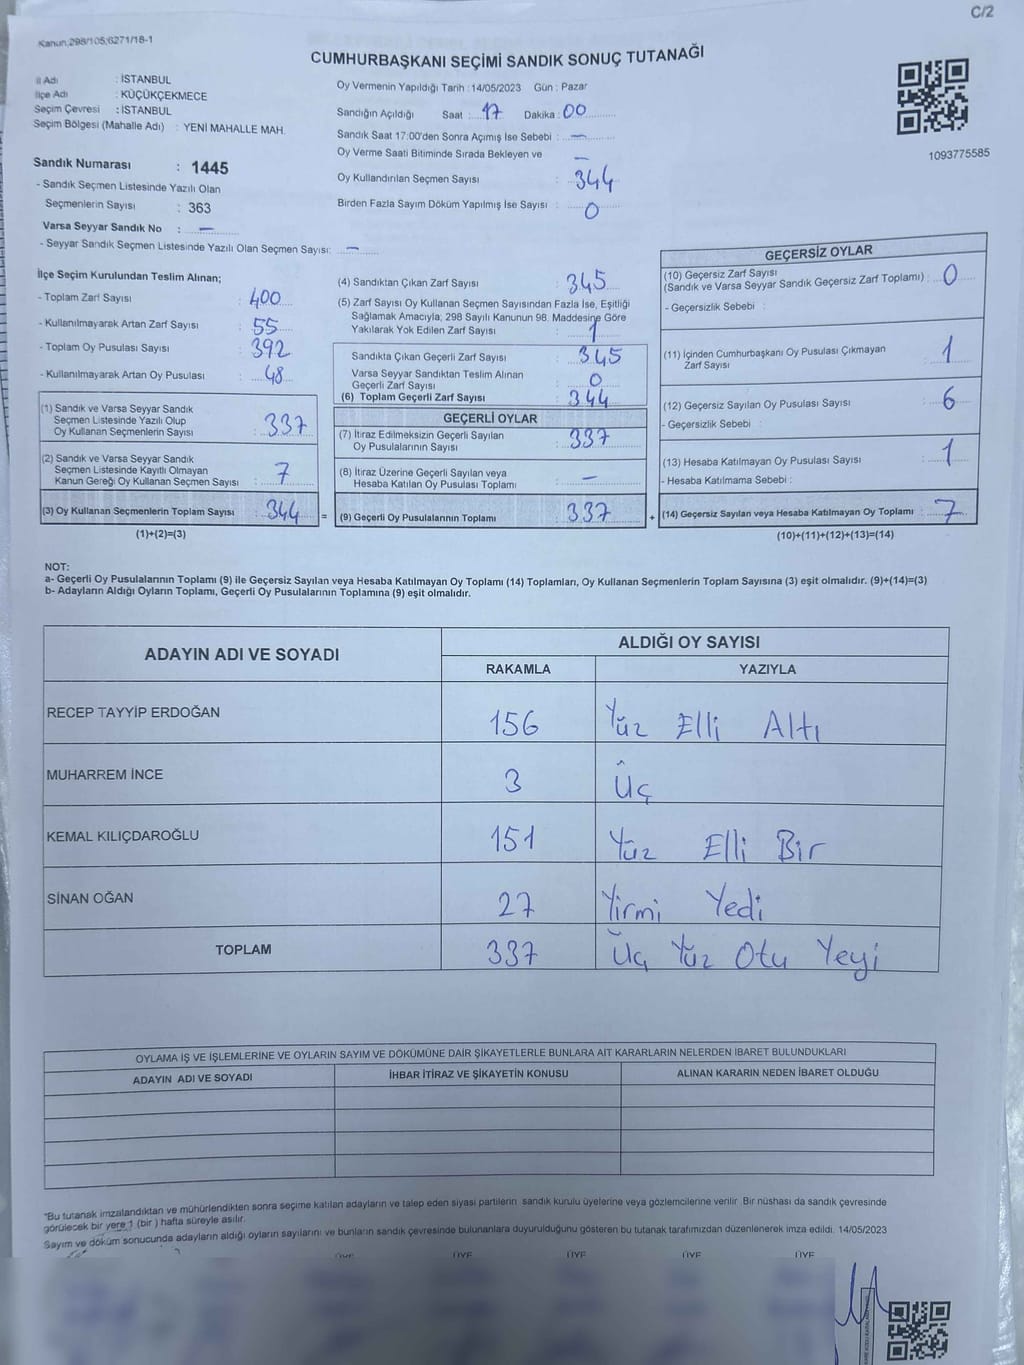 C/2
Kanun:298/105;6271/18-1
CUMHURBAŞKANI SEÇİMİ SANDIK SONUÇ TUTANAĞI
İl Adı : İSTANBUL
İlçe Adı : KÜÇÜKÇEKMECE
Seçim Çevresi : İSTANBUL
Seçim Bölgesi (Mahalle Adı) : YENİ MAHALLE MAH.
Sandık Numarası : 1445
- Sandık Seçmen Listesinde Yazılı Olan
Seçmenlerin Sayısı : 363
Varsa Seyyar Sandık No : —
- Seyyar Sandık Seçmen Listesinde Yazılı Olan Seçmen Sayısı: —
Oy Vermenin Yapıldığı Tarih : 14/05/2023 Gün : Pazar
Sandığın Açıldığı Saat : 17 Dakika : 00
Sandık Saat 17:00'den Sonra Açımış İse Sebebi : —
Oy Verme Saati Bitiminde Sırada Bekleyen ve —
Oy Kullandırılan Seçmen Sayısı : 344
Birden Fazla Sayım Döküm Yapılmış İse Sayısı : 0
1093775585
İlçe Seçim Kurulundan Teslim Alınan;
- Toplam Zarf Sayısı : 400
- Kullanılmayarak Artan Zarf Sayısı : 55
- Toplam Oy Pusulası Sayısı : 392
- Kullanılmayarak Artan Oy Pusulası : 48
(1) Sandık ve Varsa Seyyar Sandık
Seçmen Listesinde Yazılı Olup
Oy Kullanan Seçmenlerin Sayısı : 337
(2) Sandık ve Varsa Seyyar Sandık
Seçmen Listesinde Kayıtlı Olmayan
Kanun Gereği Oy Kullanan Seçmen Sayısı : 7
(3) Oy Kullanan Seçmenlerin Toplam Sayısı : 344 =
(1)+(2)=(3)
(4) Sandıktan Çıkan Zarf Sayısı : 345
(5) Zarf Sayısı Oy Kullanan Seçmen Sayısından Fazla İse, Eşitliği
Sağlamak Amacıyla, 298 Sayılı Kanunun 98. Maddesine Göre
Yakılarak Yok Edilen Zarf Sayısı : 1
Sandıkta Çıkan Geçerli Zarf Sayısı : 345
Varsa Seyyar Sandıktan Teslim Alınan
Geçerli Zarf Sayısı : 0
(6) Toplam Geçerli Zarf Sayısı : 344
GEÇERLİ OYLAR
(7) İtiraz Edilmeksizin Geçerli Sayılan
Oy Pusulalarının Sayısı : 337
(8) İtiraz Üzerine Geçerli Sayılan veya
Hesaba Katılan Oy Pusulası Toplamı : —
(9) Geçerli Oy Pusulalarının Toplamı : 337 +
GEÇERSİZ OYLAR
(10) Geçersiz Zarf Sayısı
(Sandık ve Varsa Seyyar Sandık Geçersiz Zarf Toplamı) : 0
- Geçersizlik Sebebi :
(11) İçinden Cumhurbaşkanı Oy Pusulası Çıkmayan
Zarf Sayısı : 1
(12) Geçersiz Sayılan Oy Pusulası Sayısı : 6
- Geçersizlik Sebebi :
(13) Hesaba Katılmayan Oy Pusulası Sayısı : 1
- Hesaba Katılmama Sebebi :
(14) Geçersiz Sayılan veya Hesaba Katılmayan Oy Toplamı : 7
(10)+(11)+(12)+(13)=(14)
NOT:
a- Geçerli Oy Pusulalarının Toplamı (9) ile Geçersiz Sayılan veya Hesaba Katılmayan Oy Toplamı (14) Toplamları, Oy Kullanan Seçmenlerin Toplam Sayısına (3) eşit olmalıdır. (9)+(14)=(3)
b- Adayların Aldığı Oyların Toplamı, Geçerli Oy Pusulalarının Toplamına (9) eşit olmalıdır.
ADAYIN ADI VE SOYADI ALDIĞI OY SAYISI
RAKAMLA YAZIYLA
RECEP TAYYİP ERDOĞAN 156 Yüz Elli Altı
MUHARREM İNCE 3 Üç
KEMAL KILIÇDAROĞLU 151 Yüz Elli Bir
SİNAN OĞAN 27 Yirmi Yedi
TOPLAM 337 Üç Yüz Otu Yeyi
OYLAMA İŞ VE İŞLEMLERİNE VE OYLARIN SAYIM VE DÖKÜMÜNE DAİR ŞİKAYETLERLE BUNLARA AİT KARARLARIN NELERDEN İBARET BULUNDUKLARI
ADAYIN ADI VE SOYADI İHBAR İTİRAZ VE ŞİKAYETİN KONUSU ALINAN KARARIN NEDEN İBARET OLDUĞU
"Bu tutanak imzalandıktan ve mühürlendikten sonra seçime katılan adayların ve talep eden siyasi partilerin sandık kurulu üyelerine veya gözlemcilerine verilir. Bir nüshası da sandık çevresinde
görülecek bir yere 1 (bir ) hafta süreyle asılır.
Sayım ve döküm sonucunda adayların aldığı oyların sayılarını ve bunların sandık çevresinde bulunanlara duyurulduğunu gösteren bu tutanak tarafımızdan düzenlenerek imza edildi. 14/05/2023
ÜYE ÜYE ÜYE ÜYE ÜYE